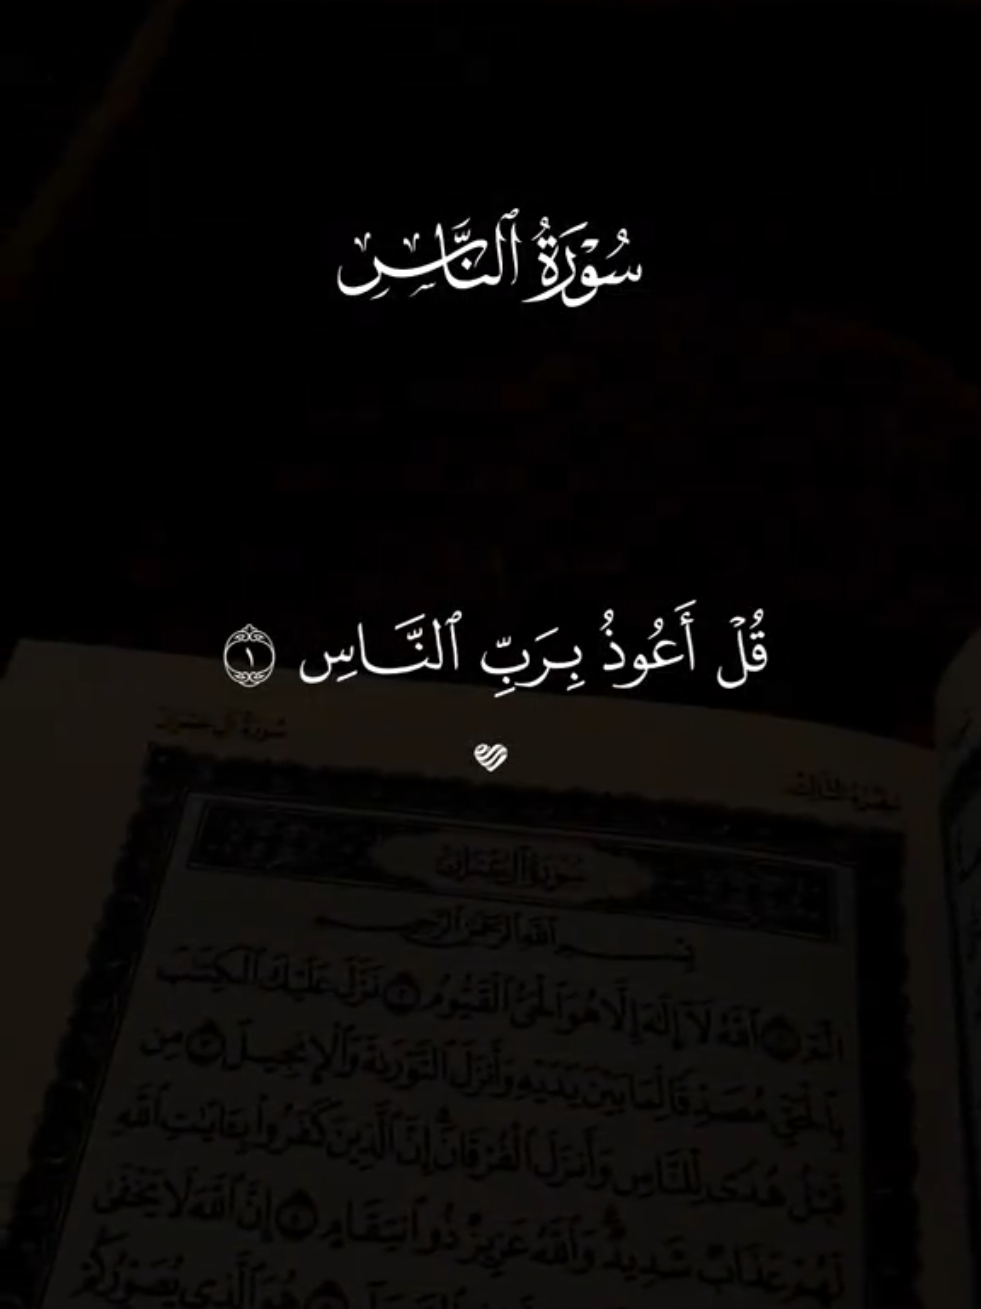 سُورَةُ ٱلنَّاسِ
قُلۡ أَعُوذُ بِرَبِّ ٱلنَّاسِ ١
سُورَةُ آلِ عِمۡرَانَ
سُورَةُ آلِ عِمۡرَانَ
بِسۡمِ ٱللَّهِ ٱلرَّحۡمَٰنِ ٱلرَّحِيمِ
الٓمٓ ١ ٱللَّهُ لَآ إِلَٰهَ إِلَّا هُوَ ٱلۡحَيُّ ٱلۡقَيُّومُ ٢ نَزَّلَ عَلَيۡكَ ٱلۡكِتَٰبَ
بِٱلۡحَقِّ مُصَدِّقٗا لِّمَا بَيۡنَ يَدَيۡهِ وَأَنزَلَ ٱلتَّوۡرَىٰةَ وَٱلۡإِنجِيلَ ٣ مِن
قَبۡلُ هُدٗى لِّلنَّاسِ وَأَنزَلَ ٱلۡفُرۡقَانَۗ إِنَّ ٱلَّذِينَ كَفَرُواْ بِـَٔايَٰتِ ٱللَّهِ
لَهُمۡ عَذَابٞ شَدِيدٞۗ وَٱللَّهُ عَزِيزٞ ذُو ٱنتِقَامٍ ٤ إِنَّ ٱللَّهَ لَا يَخۡفَىٰ
هُوَ ٱلَّذِي يُصَوِّرُكُمۡ